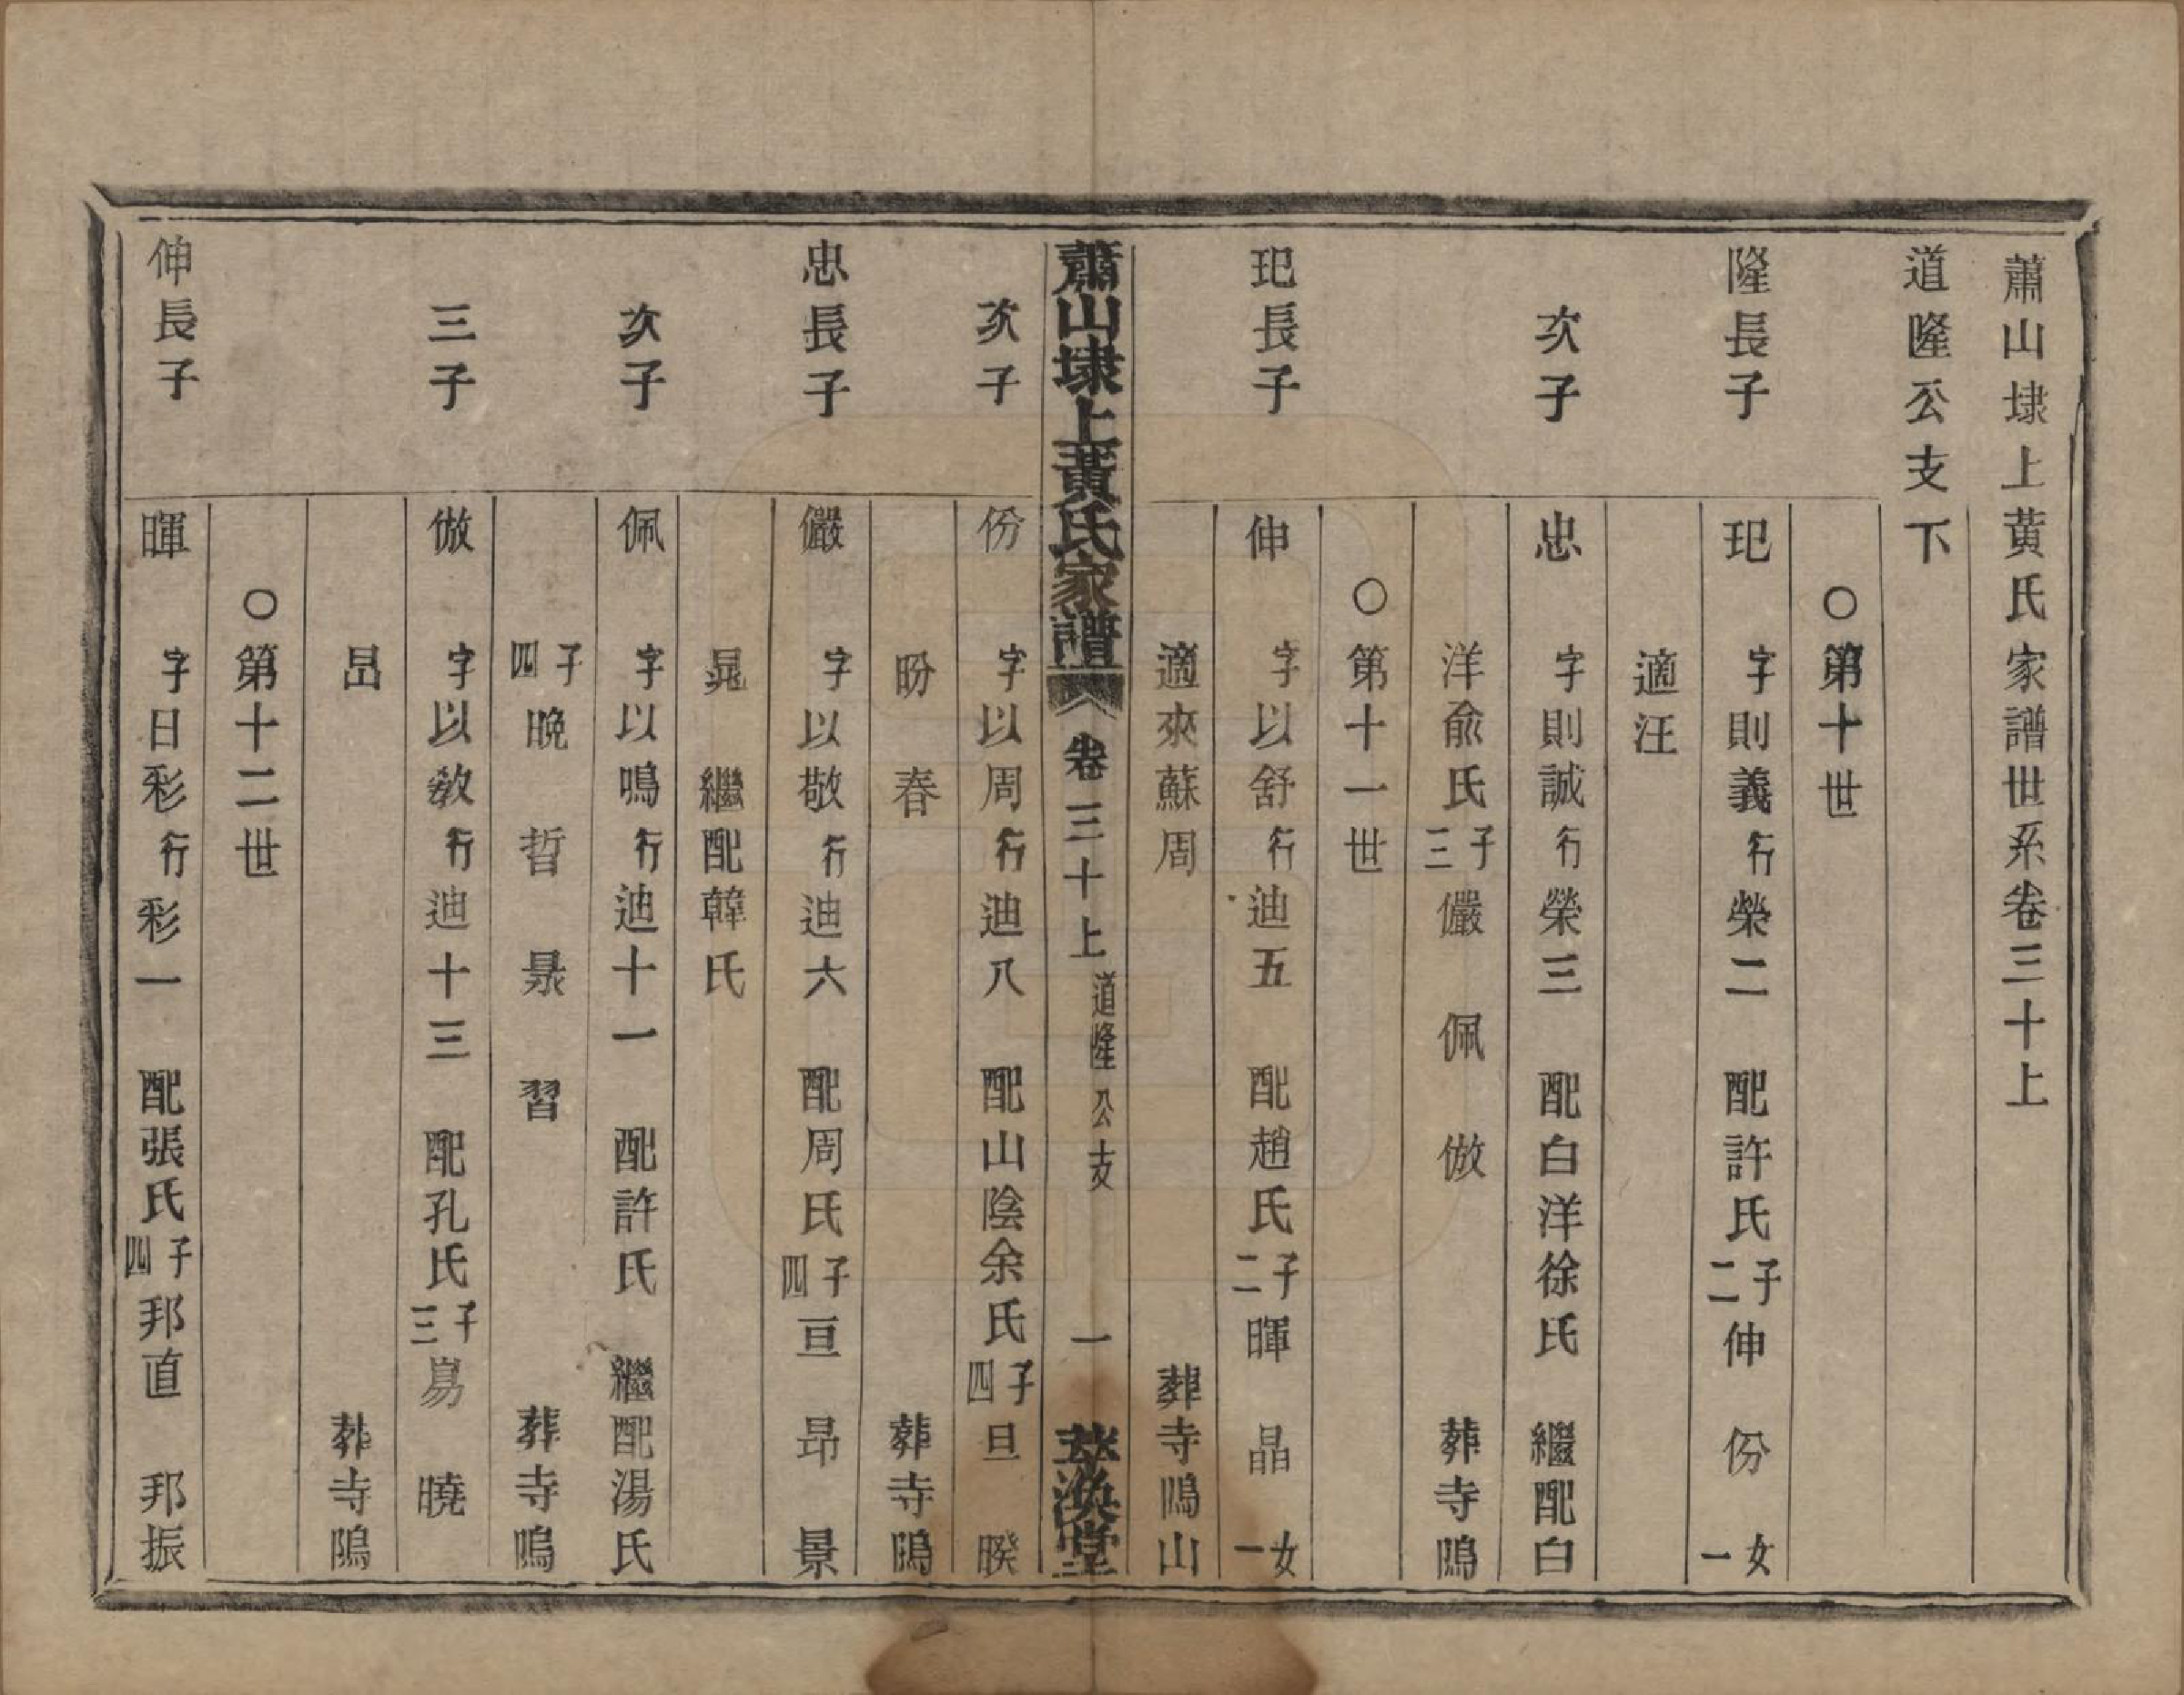 蕭山埭上黃氏家譜世系卷三十上
道隆公支下
○第十世
隆長子 玘 字則義行榮二 配許氏子二伸 份 女一
適汪
次子 忠 字則誠行榮三 配白洋徐氏 繼配白
洋俞氏子三儼 佩 倣 葬寺隖
○第十一世
玘長子 伸 字以舒行迪五 配趙氏子二暉 晶 女一
適來蘇周 葬寺隖山
蕭山埭上黃氏家譜 卷三十上 道隆公支 一 萃渙堂
次子 份 字以周行迪八 配山陰余氏子四旦 暌
昐 春 葬寺隖
忠長子 儼 字以敬行迪六 配周氏子四亘 昂 景
晃 繼配韓氏
次子 佩 字以鳴行迪十一 配許氏 繼配湯氏
子四晚 晢 晸 習 葬寺隖
三子 倣 字以敎行迪十三 配孔氏子三昜 曉
昌 葬寺隖
○第十二世
伸長子 暉 字日彩行彩一 配張氏子四邦直 邦振